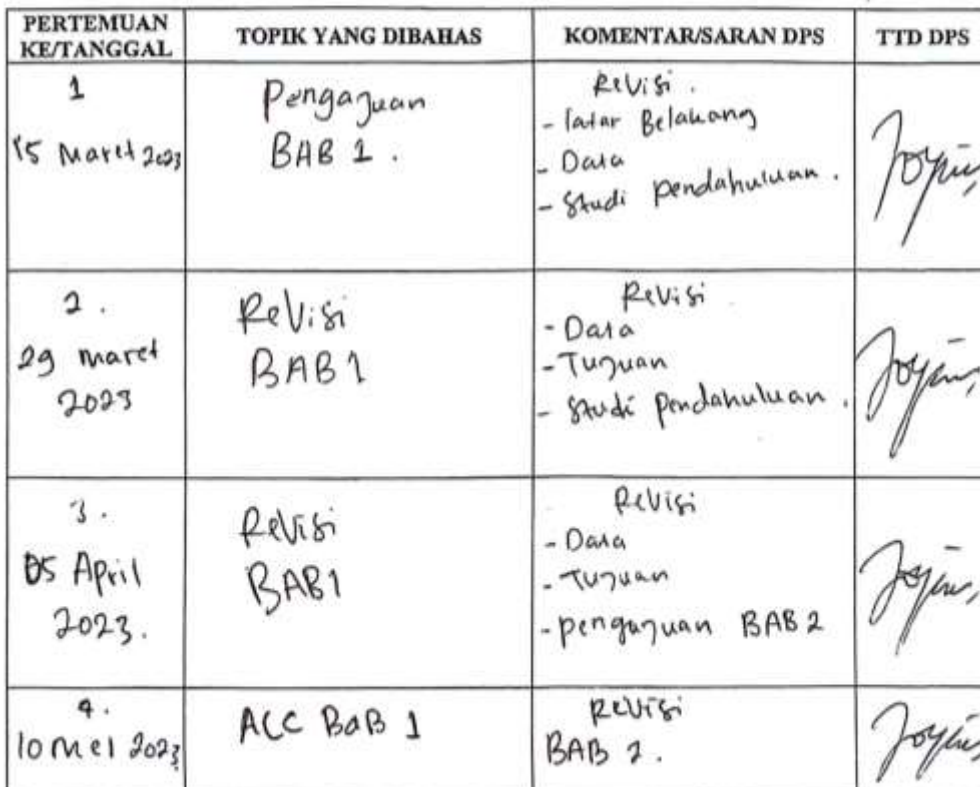 PERTEMUAN KE/TANGGAL TOPIK YANG DIBAHAS KOMENTAR/SARAN DPS TTD DPS
1
15 Maret 2023
Pengajuan
BAB 1.
Revisi.
- latar Belakang
- Data
- Studi pendahuluan.
2.
29 maret
2023
Revisi
BAB 1
Revisi
- Data
- Tujuan
- Studi pendahuluan.
3.
05 April
2023.
Revisi
BAB 1
Revisi
- Data
- Tujuan
- pengajuan BAB 2
4.
10 mei 2023
ACC BaB 1
Revisi
BAB 2.